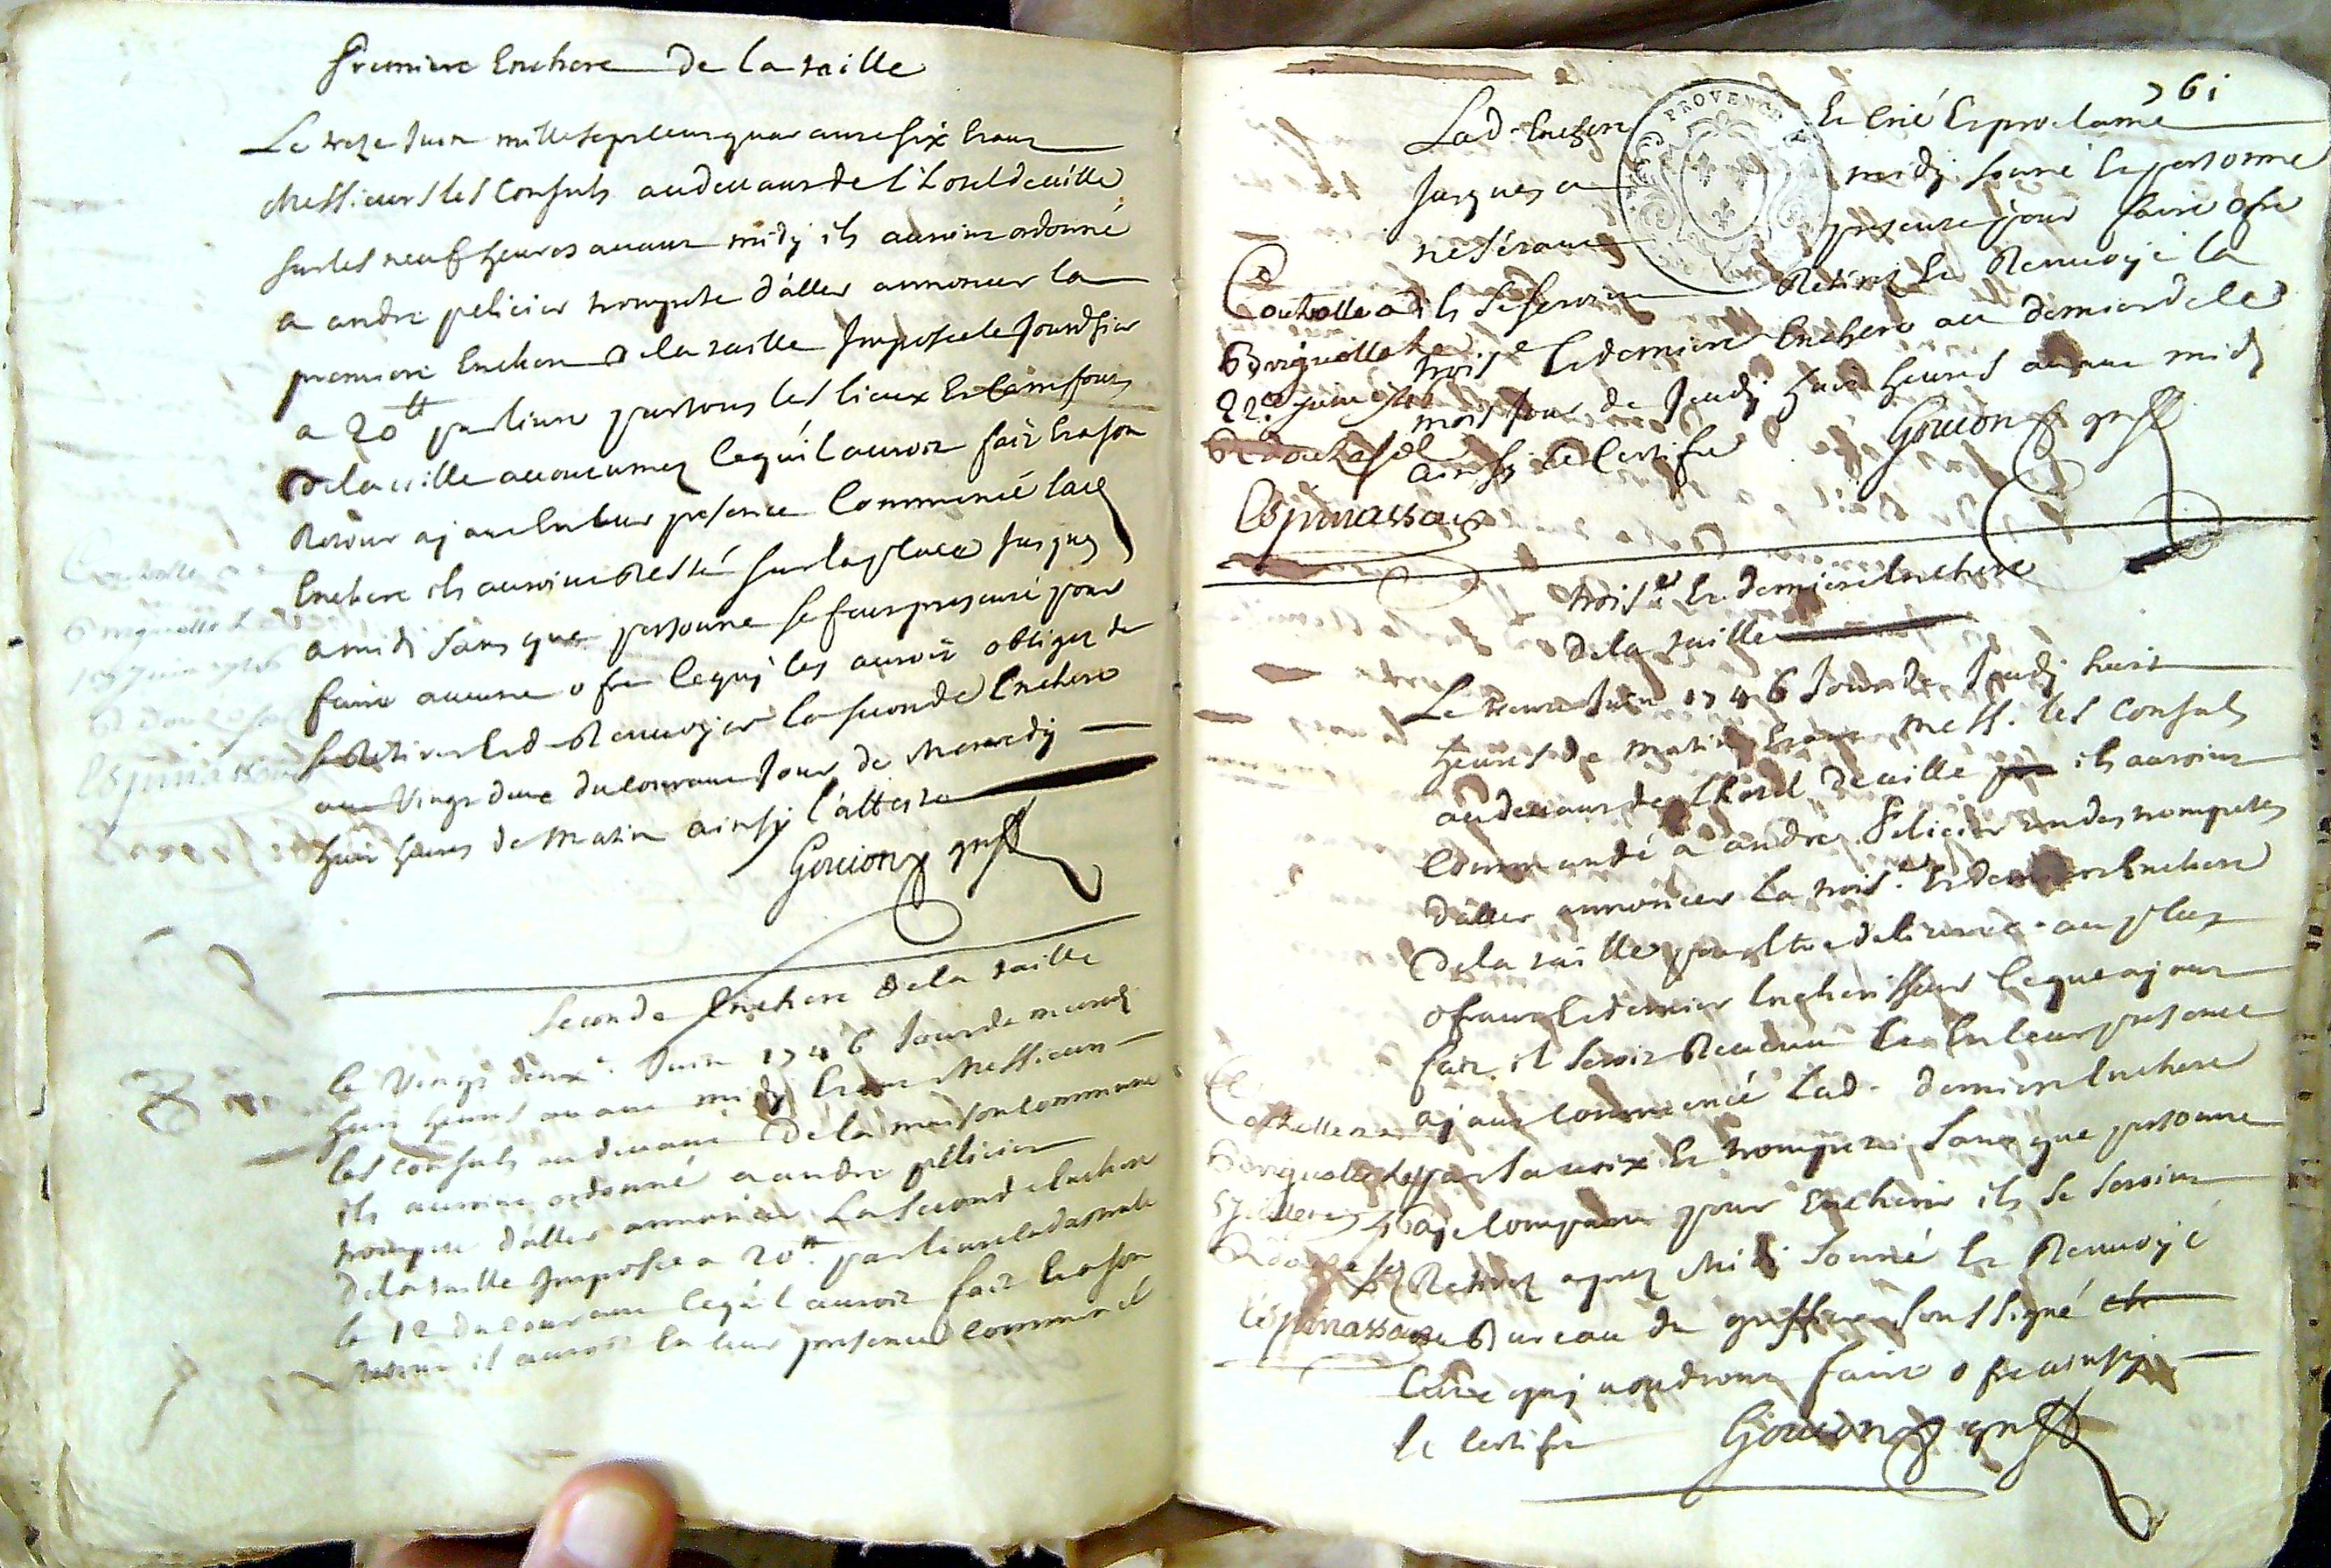 Premiere Enchere de la taille
Le treze Juin mille sept cens quarante six Etant
Messieurs les Consuls au devant de l'hotel de ville
sur les neuf heures avant midy ils auroint ordonné
a andre pelicier trompete d'aller annoncer la
premiere Enchere de la taille Imposée le Jourdhier
a 20 ₶ par livre par tous les lieux Et
de la ville accoutumez Ce qu'il auroit fait Et a son
Retour ayant En leur presence Commencé lad.
Enchere ils auroint Resté sur la place Jusques
a midi sans que persoune se feut presenté pour
faire aucune ofre Ce quy les auroit obligez de
se Retirer Et de Renvoyer la seconde Enchere
au Vingt deux du courant Jour de Mecredy
huit heures de Matin ainsy l'atteste
Gouion greff
Seconde Enchere de la taille
le Vingt deux.e Juin 1746 Jour de mecredy
huit heures avant midy Etant Messieurs
les Consuls au devant de la maison commune
ils auroint ordonné a andre pellicier
trompete d'aller annoncer La seconde Enchere
de la taille Imposée a 20 ₶ par livre cadastrale
le 12 du courant Ce qu'il auroit fait Et a son
Retour il auroit En leur presence commencé
761
Lad. Enchere Et Crié Et proclamé
Jusques a midy sonné Et persoune
ne s'etant presenté pour faire ofre
ils se seroint Retirez Et Renvoyé la
trois.e Et derniere Enchere au dernier de ce
mois Jour de Jeudy huit heures avant midy
ainsy le Certifie Gouion greff
Controllé a
Brignolle le
22.e Juin 1746
R douze s
Espinassaux
PROVENCE
trois.e Et derniere Enchere
de la taille
Le trente Juin 1746 Jour de Jeudy huit
heures de matin Etant Mess. les Consuls
au devant de l'hotel de ville ils auroint
Commandé a andre Pelicier un des trompetes
d'aller annoncer La trois.e Et derniere Enchere
de la taille pour Etre delivrée au plus
ofrant Et dernier Encherisseur Ce que ayant
fait il seroit Revenu Et En leur presence
ayant commencé Lad. derniere Enchere
par sa voix Et trompete sans que persoune
aye comparu pour Encherir ils se seroint
Retirez apres Midi sonné Et Renvoyé
au Bureau du greffier soussigné
Ceux quy voudront faire ofre ainsy
le Certifie Gouion greff
Controllé a
Brignolle le
5 Juillet 1746
R douze s
Espinassaux